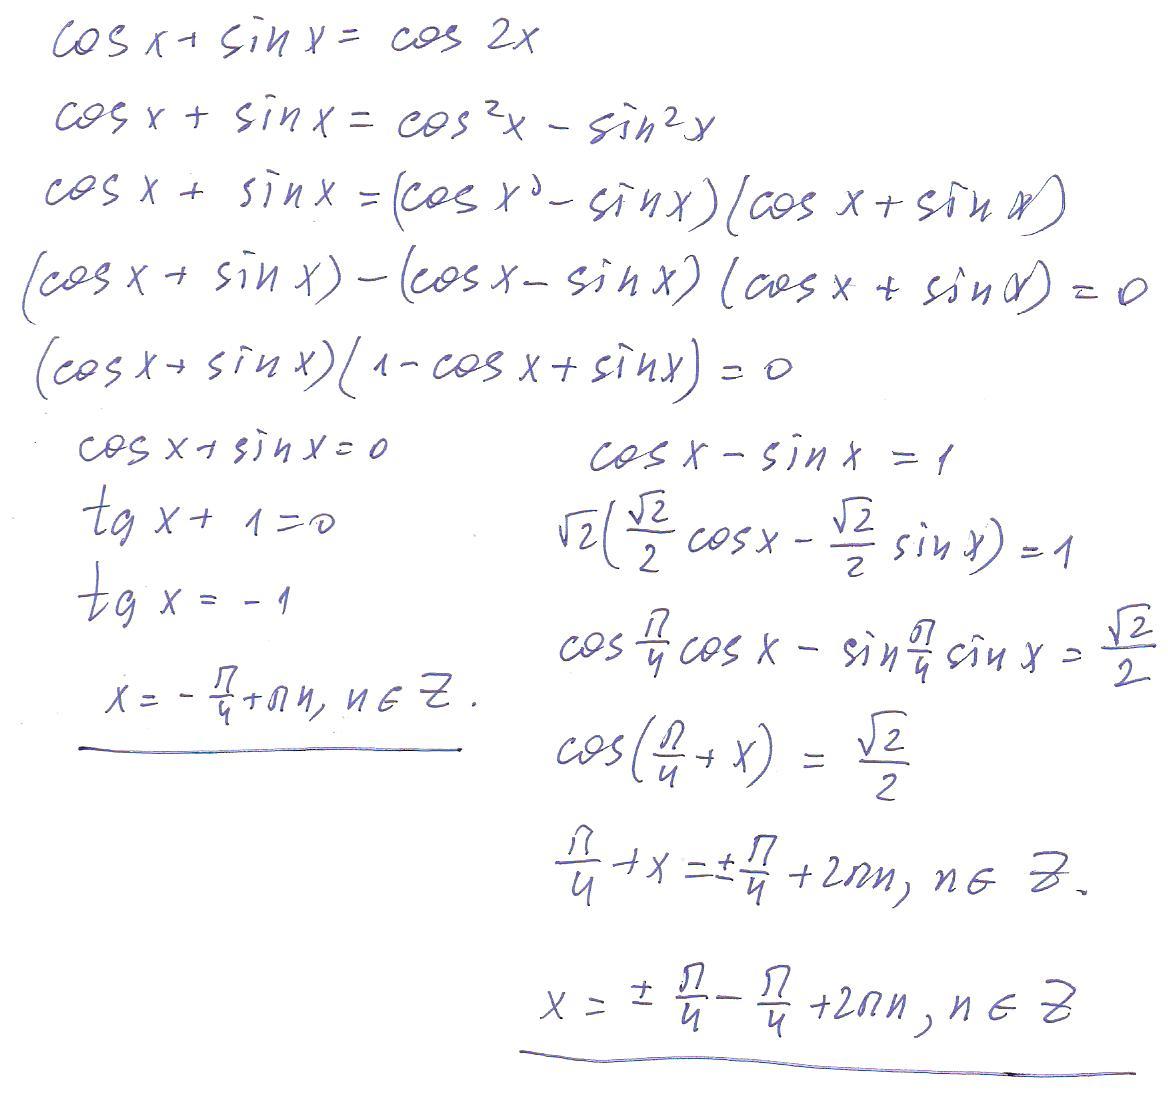 cos x + sin x = cos 2x
cos x + sin x = cos²x - sin²x
cos x + sin x = (cos x - sin x)(cos x + sin x)
(cos x + sin x) - (cos x - sin x)(cos x + sin x) = 0
(cos x + sin x)(1 - cos x + sin x) = 0
cos x + sin x = 0
tg x + 1 = 0
tg x = -1
x = -π/4 + πn, n ∈ Z.
cos x - sin x = 1
√2(√2/2 cos x - √2/2 sin x) = 1
cos π/4 cos x - sin π/4 sin x = √2/2
cos(π/4 + x) = √2/2
π/4 + x = ±π/4 + 2πn, n ∈ Z.
x = ± π/4 - π/4 + 2πn, n ∈ Z